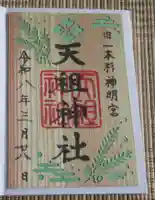 旧一本杉神明宮
天祖神社
令和八年二月廿八日